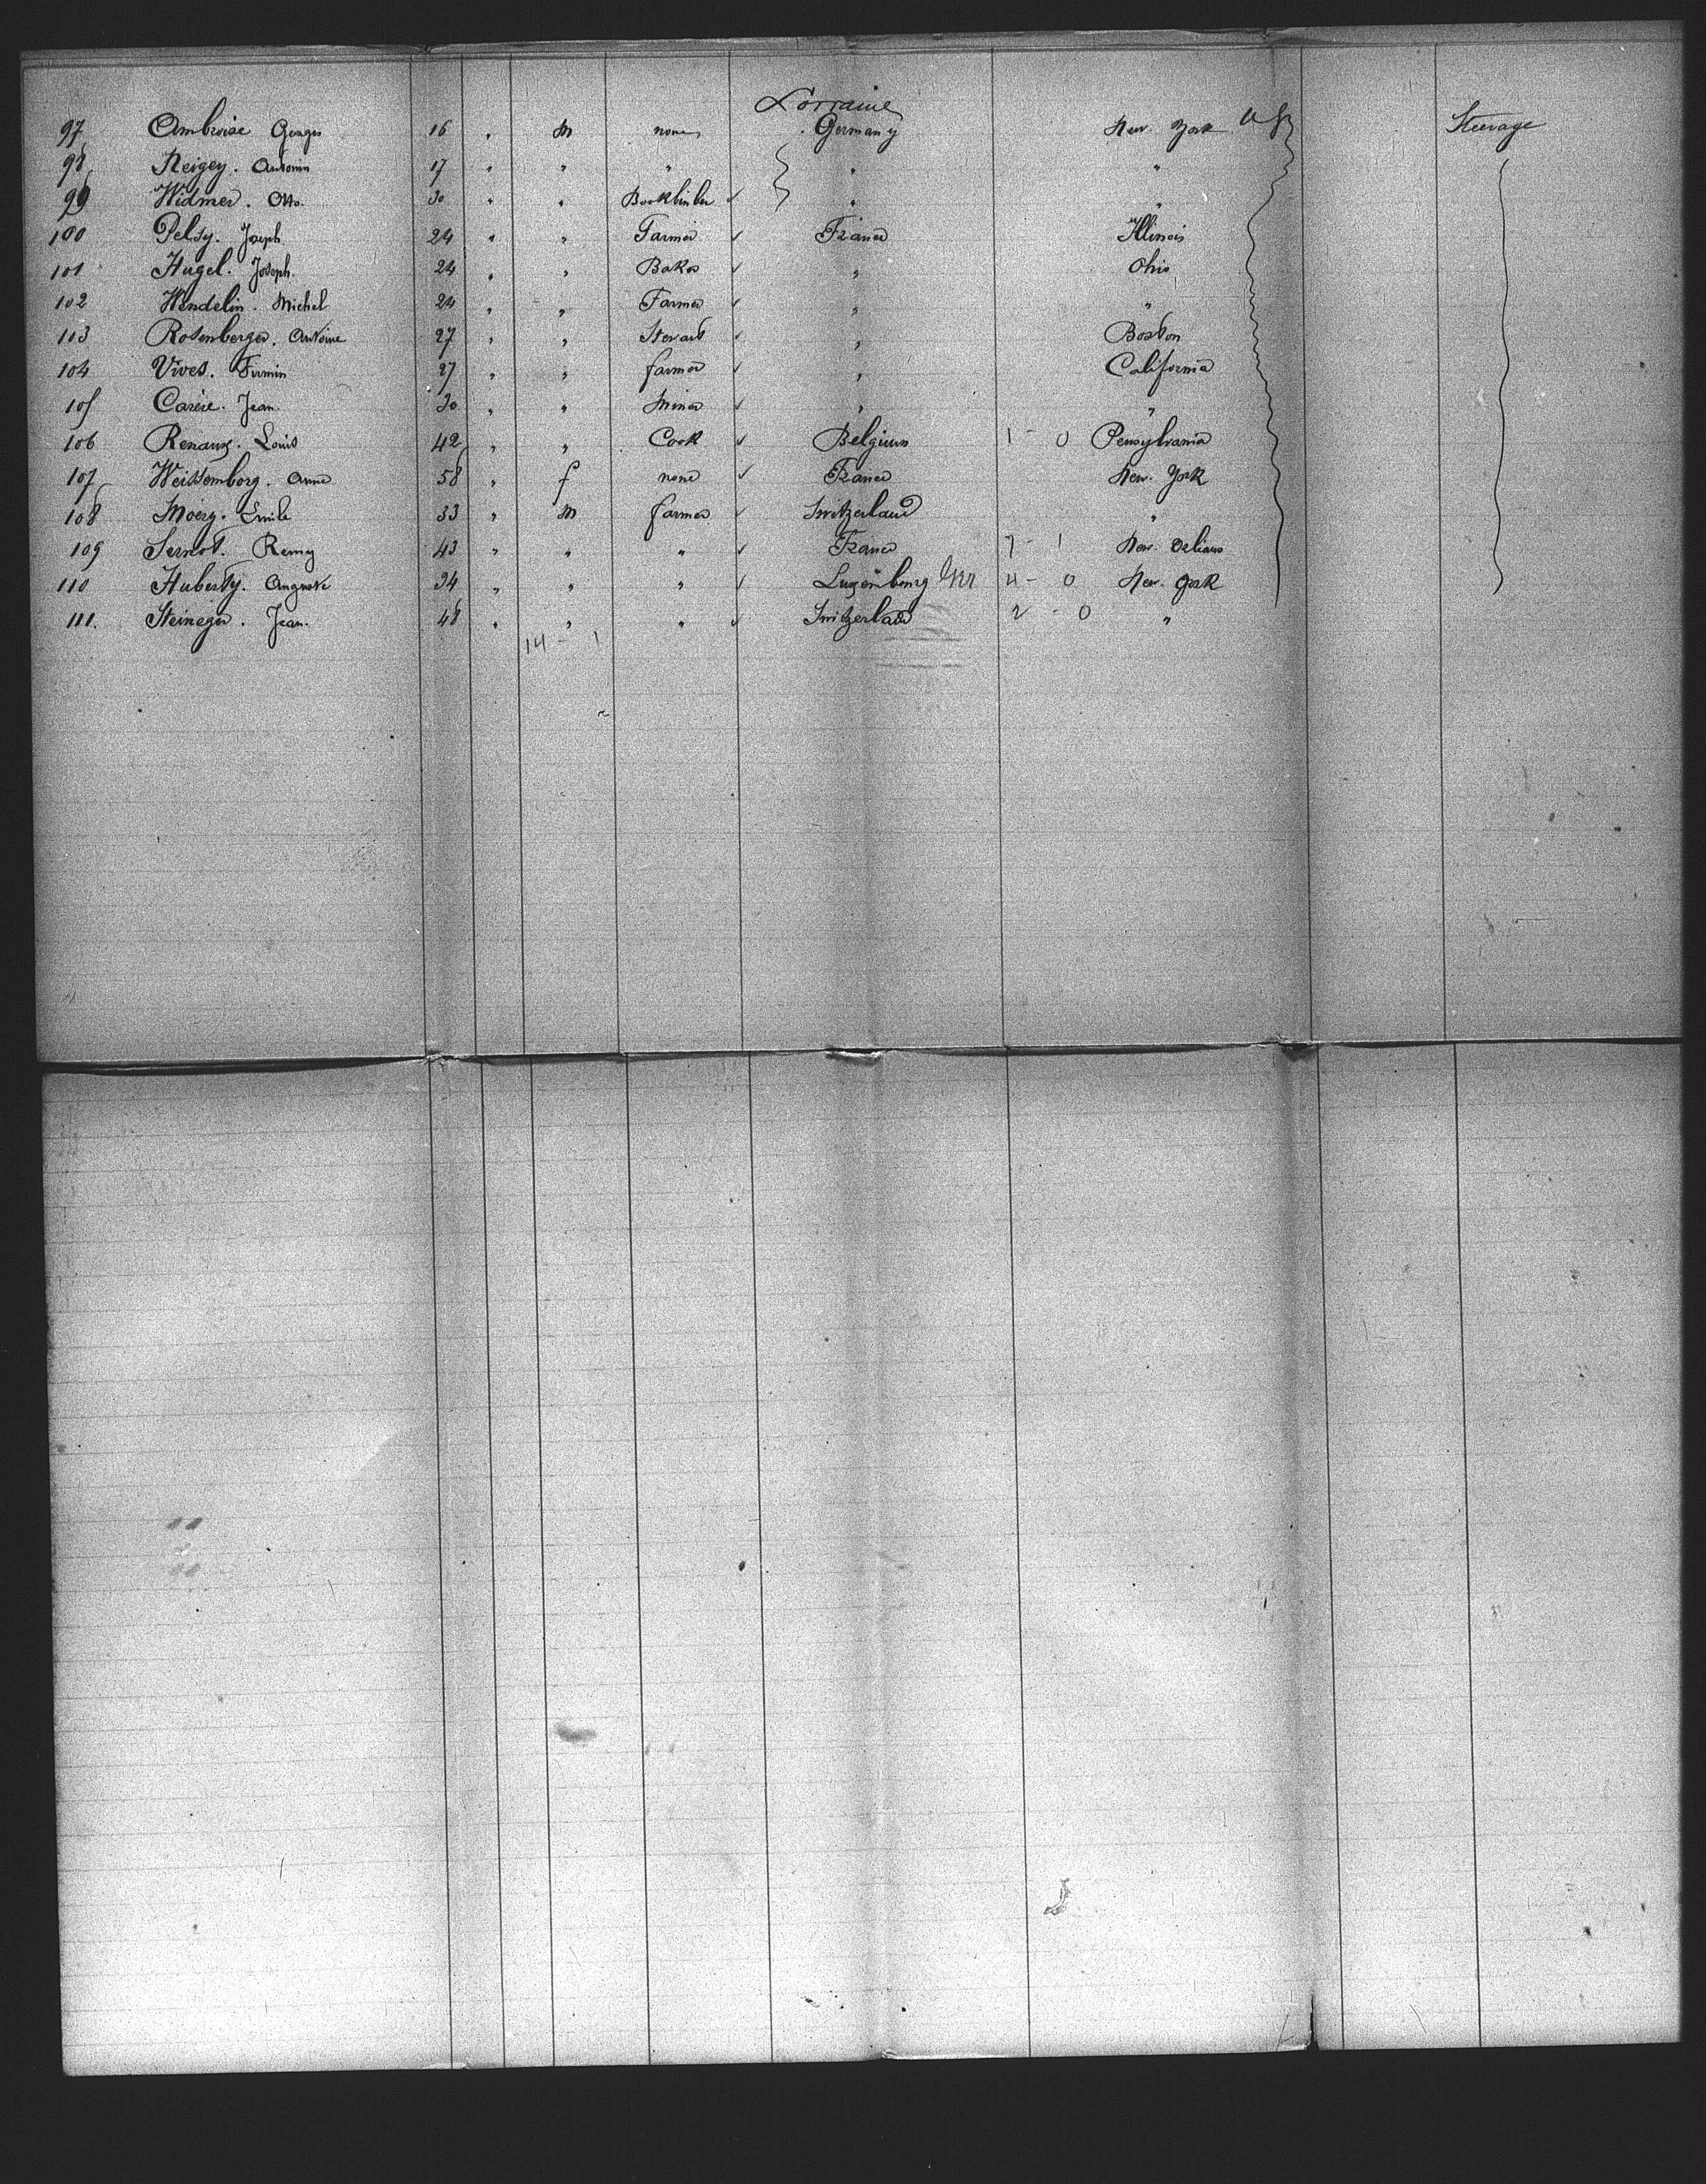 Lorraine
97 Ambroise Georges 16 " M none Germany New York Steerage
98 Neigey. Antonin 17 " " " " "
99 Widmer. Otto. 30 " " Bookbinder " "
100 Pelsy. Joseph 24 " " Farmer France Illinois
101 Hugel. Joseph. 24 " " Baker " Ohio
102 Wendelin. Michel 24 " " Farmer " "
103 Rosenberger. Antoine 27 " " Stevart " Boston
104 Vives. Firmin 27 " " farmer " California
105 Carère. Jean. 30 " " Miner " "
106 Renaux. Louis 42 " " Cook Belgium 1 - 0 Pensylvania
107 Weissemborg. Anna 58 " f none France New. York
108 Moery. Emile 33 " M farmer Switzerland "
109 Sernot. Remy 43 " " " France 7 - 1 New. Orleans
110 Huberty. Auguste 34 " " " Luxembourg 4 - 0 New. York
111. Steineger. Jean. 48 " " " Switzerland 2 - 0 "
14 - 1